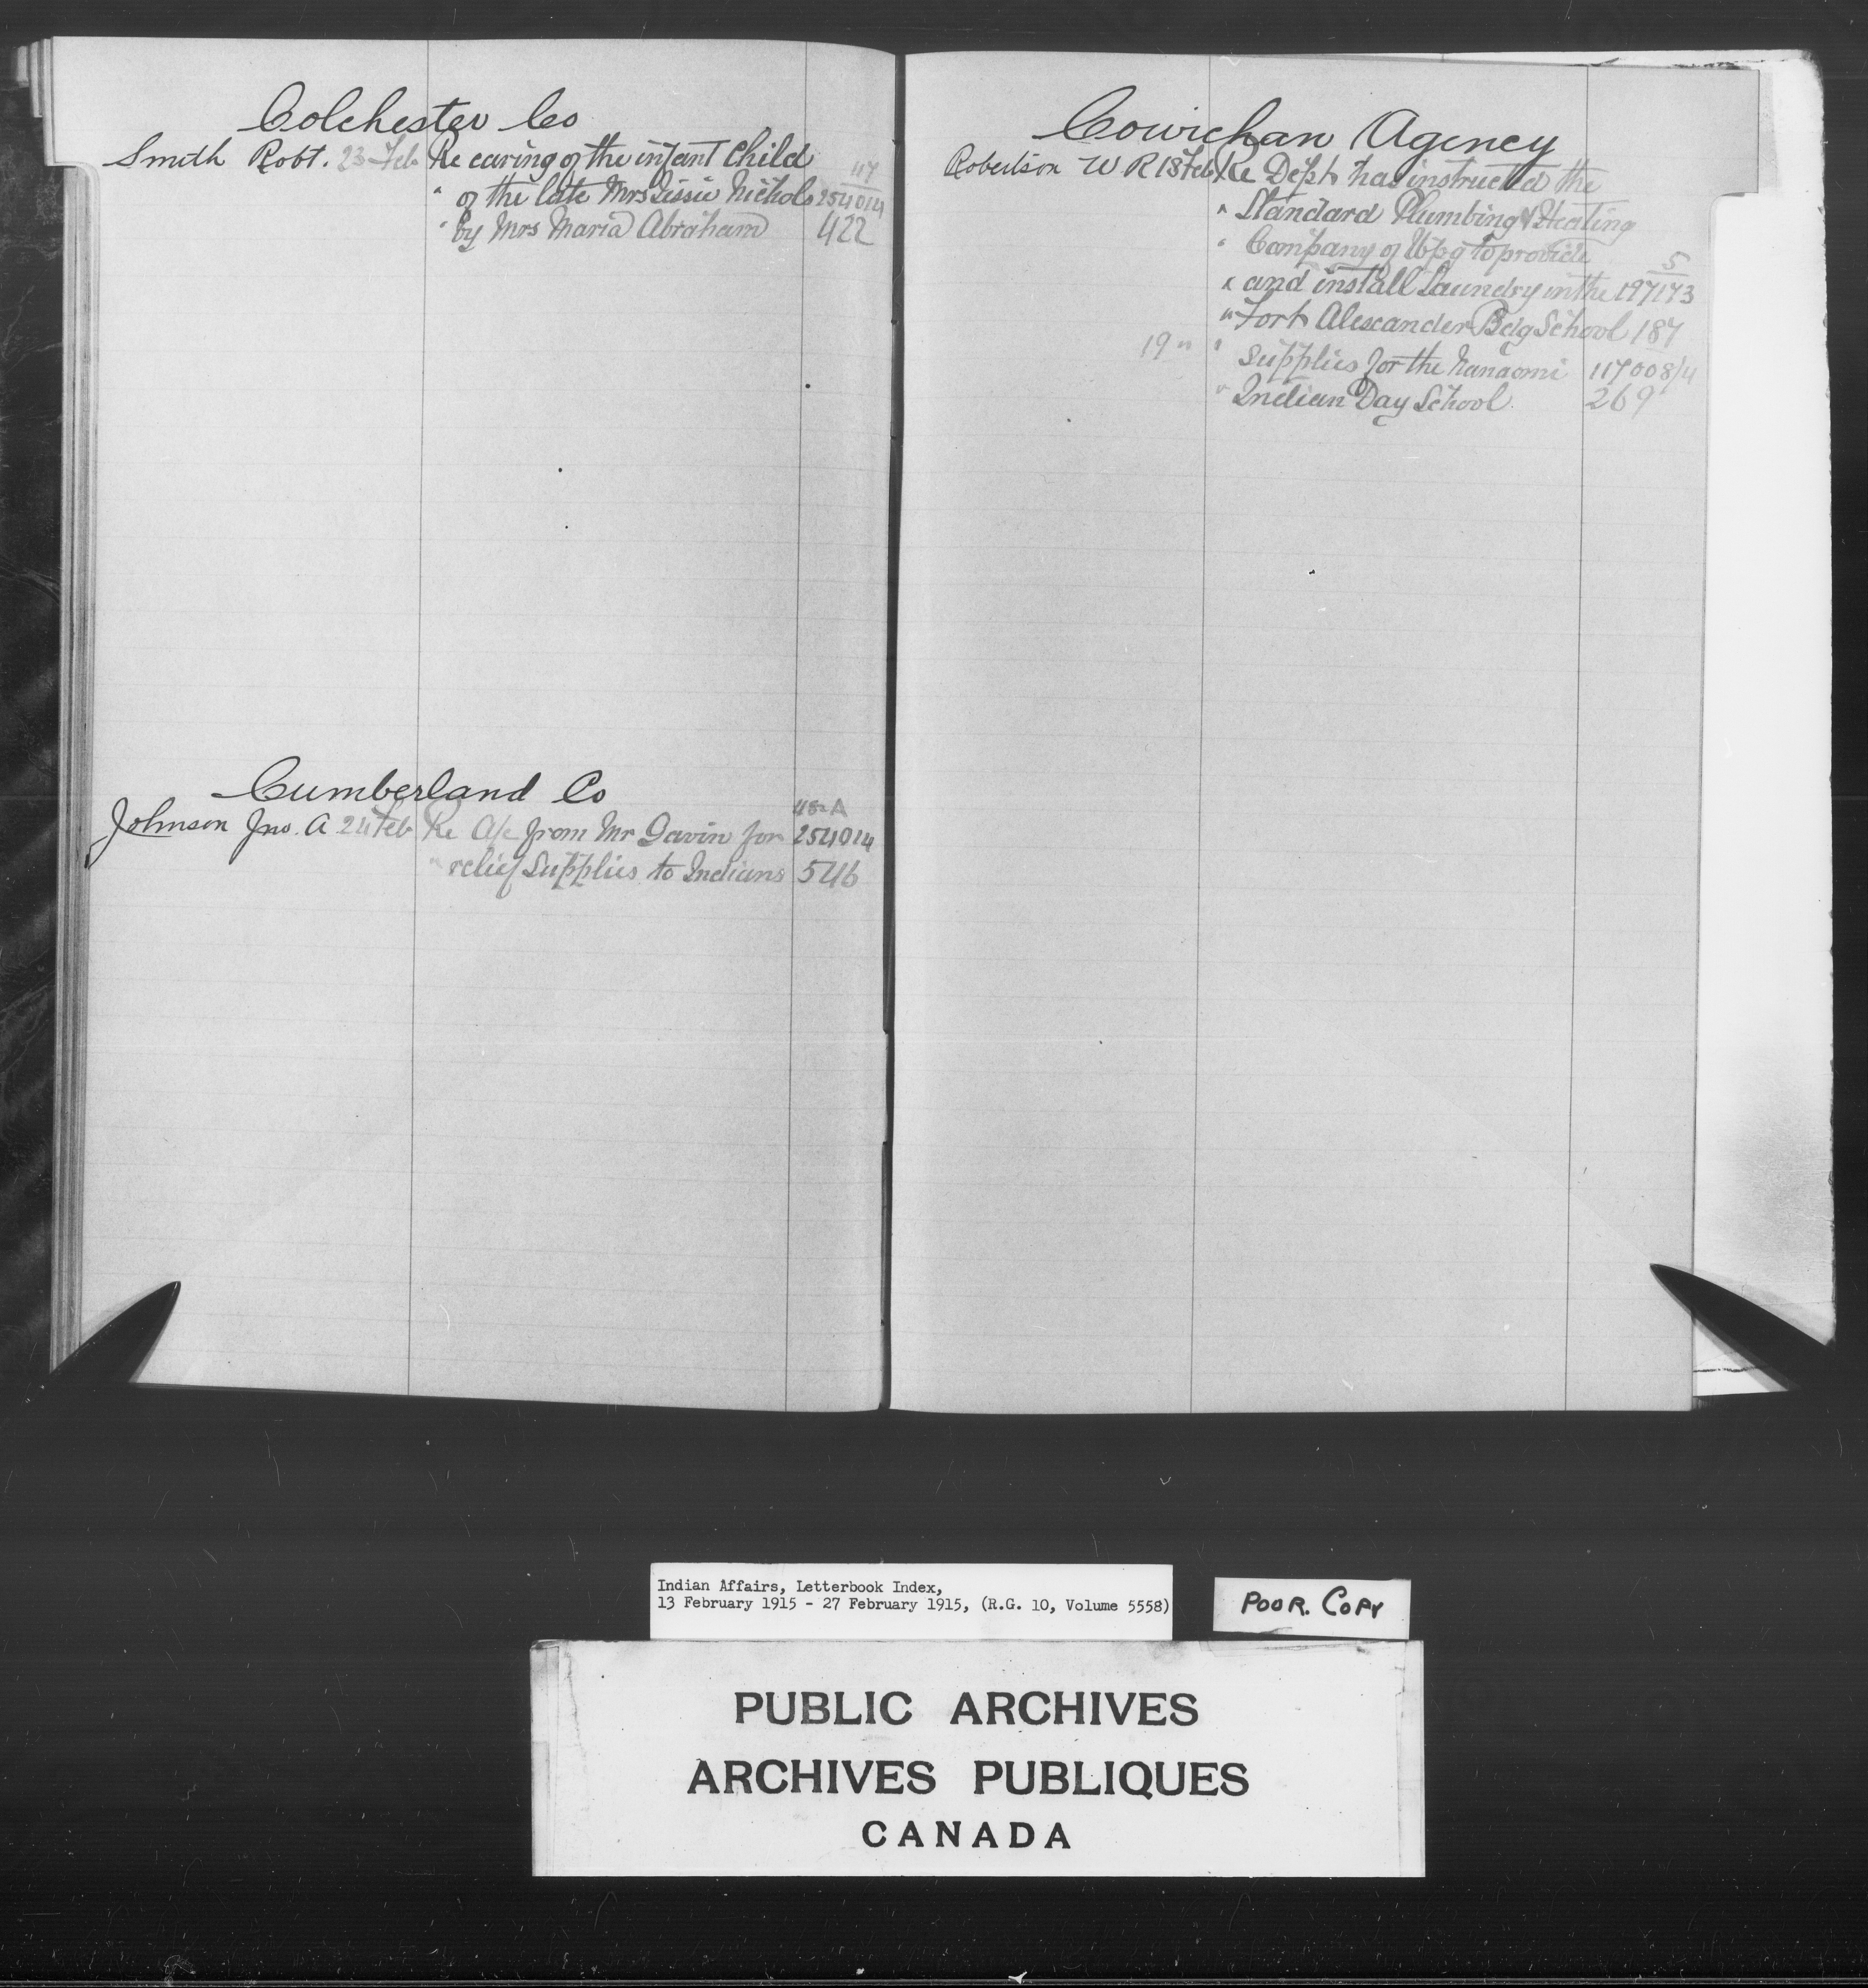 Colchester Co
Smith Robt. 23 Feb Re caring of the infant Child 117
" of the late Mrs Lissie Nichols 254014
" by Mrs Maria Abraham 422
Cumberland Co
48-A
Johnson Jno. A 24 Feb Re A/c from Mr Gavin for 254014
" relief Supplies to Indians 546
Cowichan Agency
Robertson W R 18 Feb Re Dept has instructed the
" Standard Plumbing & Heating
" Company of Wpg to provide 5
" and install Laundry in the 197173
" Fort Alexander Bdg School 187
19 " " Supplies for the Nanaomi 117008/4
" Indian Day School 269
Indian Affairs, Letterbook Index,
13 February 1915 - 27 February 1915, (R.G. 10, Volume 5558)
POOR. COPY
PUBLIC ARCHIVES
ARCHIVES PUBLIQUES
CANADA